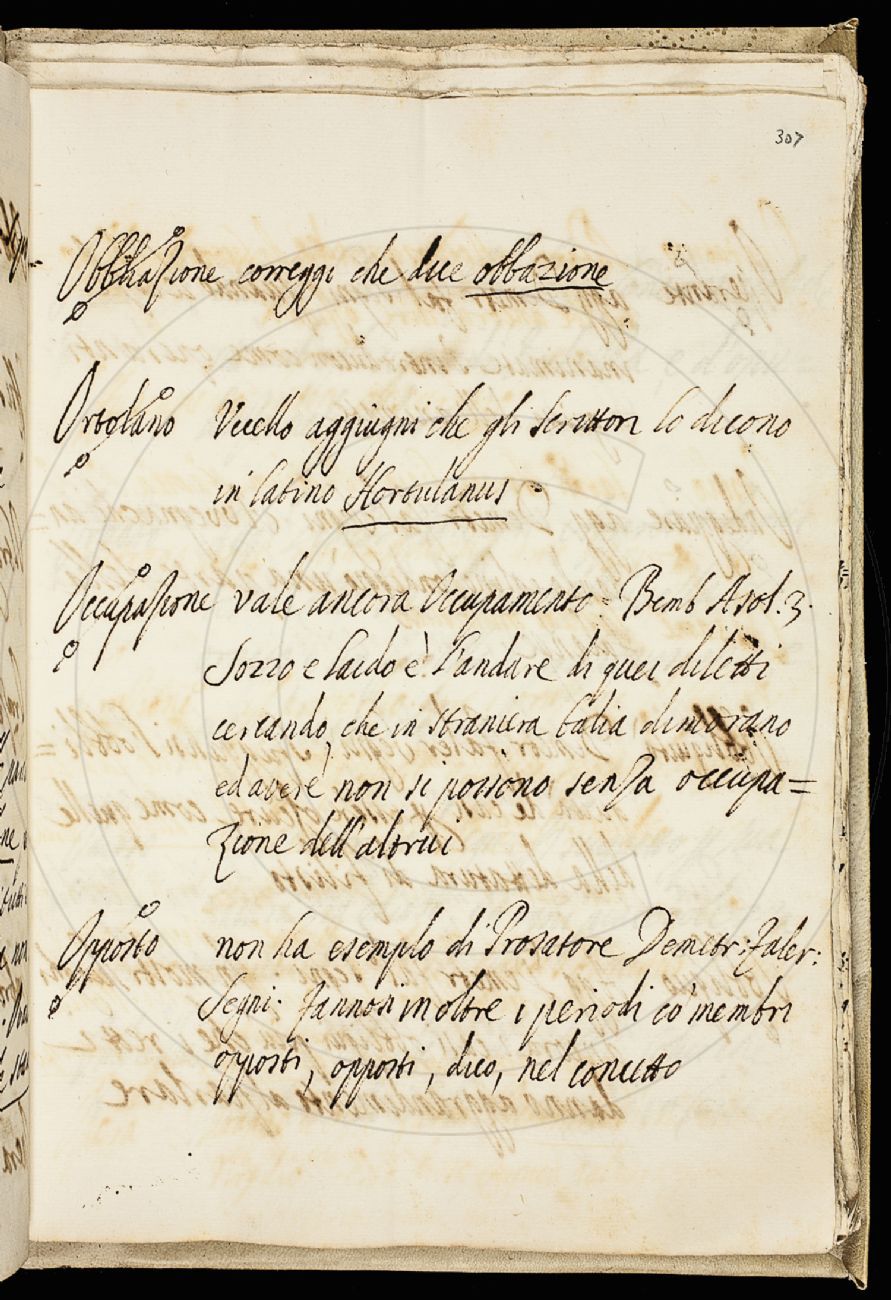 307
Obbliazione correggi che dice obbazione
Ortolano Uccello aggiugni che gli Scrittori lo dicono
in latino Hortulanus
Occupazione vale ancora Occupamento = Bemb Asol. 3.
Sozzo e laido è l'andare di quei diletti
cercando, che in straniera balia dimorano
ed avere non si possono senza occupa=
zione dell'altrui
Opposto non ha esemplo di Prosatore Demetr: Faler:
Segni. Fannosi inoltre i periodi co' membri
opposti, opposti, dico, nel concetto